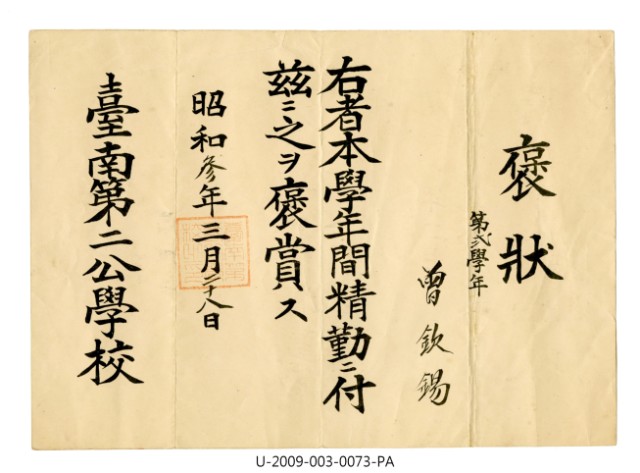 褒狀
第貳學年
曾欽錫
右者本學年間精勤ニ付
茲ニ之ヲ褒賞ス
昭和參年三月二十八日
臺南第二公學校
U-2009-003-0073-PA